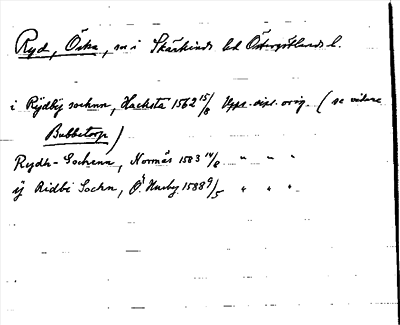 Ryd, Östra, sn i Skärkinds hd Östergötlands l.
i Rydby sochnn, Hacksta 1562 15/8 Upps. dipl. orig. (se vidare
Bubbetorp)
Rydh-Sochenn, Norrnäs 1583 14/8 " " "
ij Ridbi Sochn, Ö. Husby 1588 9/5 " " "